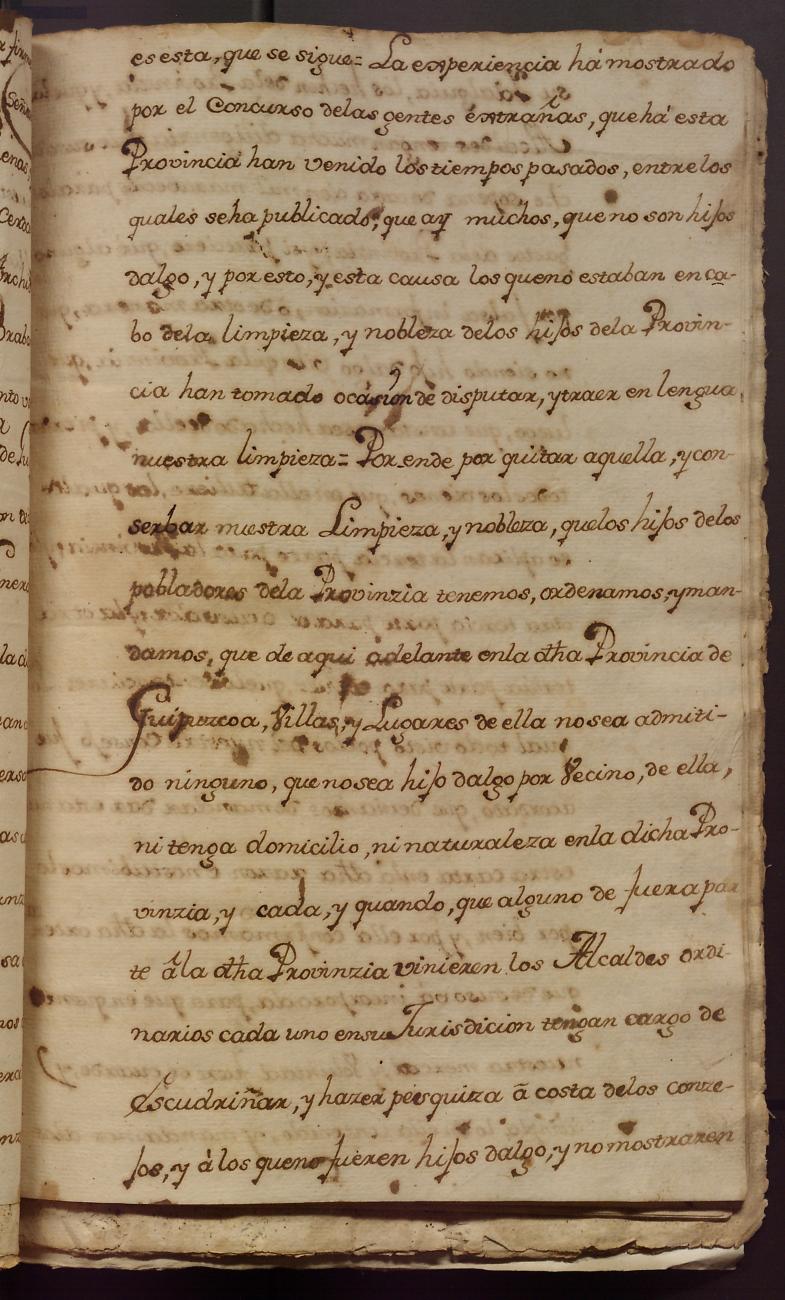 es esta, que se sigue= La experiencia há mostrado
por el Concurso delas gentes éxtrañas, que há esta
Provincia han venido los tiempos pasados, entre los
quales se ha publicado, que ay muchos, que no son hijos
dalgo, y por esto, y esta causa los que no estaban en ca-
bo dela limpieza, y nobleza delos hijos dela Provin-
cia han tomado ocásion de disputar, y traer en lengua
nuestra limpieza= Por ende por quitar aquella, y con-
serbar nuestra Limpieza, y nobleza, que los hijos delos
pobladores dela Provinzia tenemos, ordenamos, y man-
damos, que de aqui adelante en la dha Provincia de
Guipuzcoa, Villas, y Lugares de ella no sea admiti-
do ninguno, que no sea hijo dalgo por Vecino, de ella,
ni tenga domicilio, ni naturaleza en la dicha Pro-
vinzia, y cada, y quando, que alguno de fuera par
te á la dha Provinzia vinieren los Alcaldes ordi-
narios cada uno en su Jurisdicion tengan cargo de
Escudriñar, y hazer pesquiza á costa delos conze-
jos, y á los que no fueren hijos dalgo, y no mostraren